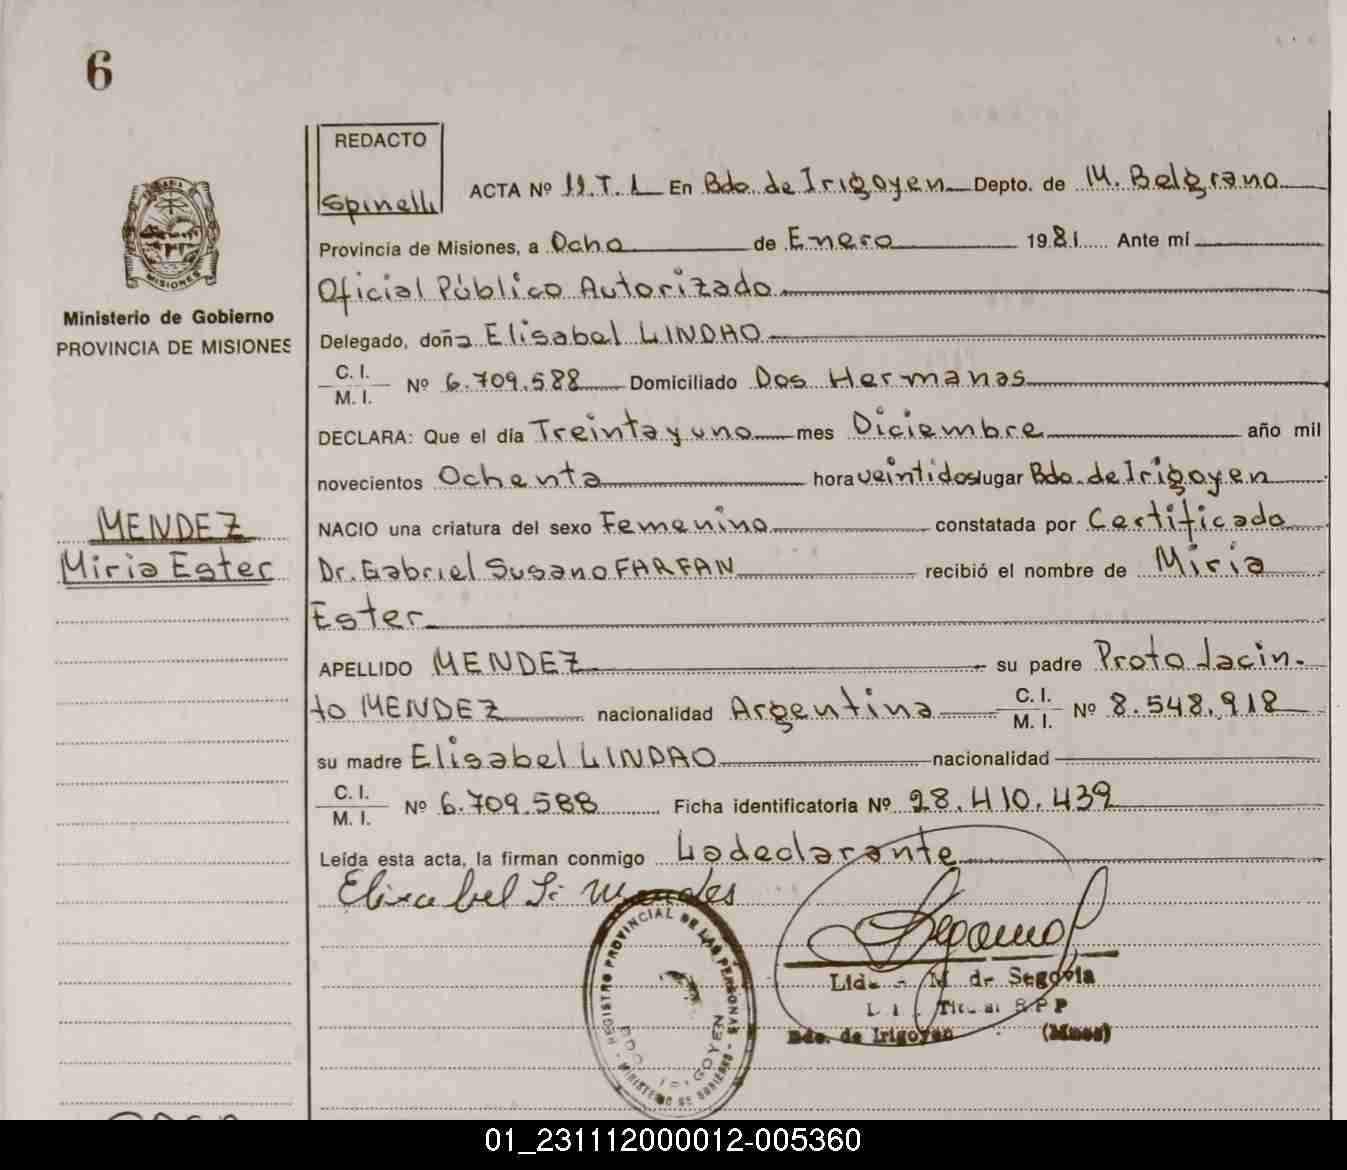 6
REDACTO
Spinelli
ACTA Nº 11.T.1 En Bdo. de Irigoyen Depto. de M. Belgrano
Provincia de Misiones, a Ocho de Enero 1981 Ante mí
Oficial Público Autorizado
MISIONES
Ministerio de Gobierno
PROVINCIA DE MISIONES
Delegado, doña Elisabel LINDAO
C. I.
M. I. Nº 6.709.588 Domiciliado Dos Hermanas
DECLARA: Que el día Treinta y uno mes Diciembre año mil
novecientos Ochenta hora veintidos lugar Bdo. de Irigoyen
MENDEZ
Miria Ester
NACIO una criatura del sexo Femenino constatada por Certificado
Dr. Gabriel Susano FARFAN recibió el nombre de Miria
Ester
APELLIDO MENDEZ su padre Proto Jacin-
to MENDEZ nacionalidad Argentina C. I.
M. I. Nº 8.548.918
su madre Elisabel LINDAO nacionalidad
C. I.
M. I. Nº 6.709.588 Ficha identificatoria Nº 28.410.439
Leída esta acta, la firman conmigo La declarante
Elisabel Li Mendes
REGISTRO PROVINCIAL DE LAS PERSONAS - MINISTERIO DE GOBIERNO -
BDO. IRIGOYEN
M de Segovia
Titular R.P.P
Bdo. de Irigoyen (Mnes)
01_231112000012-005360